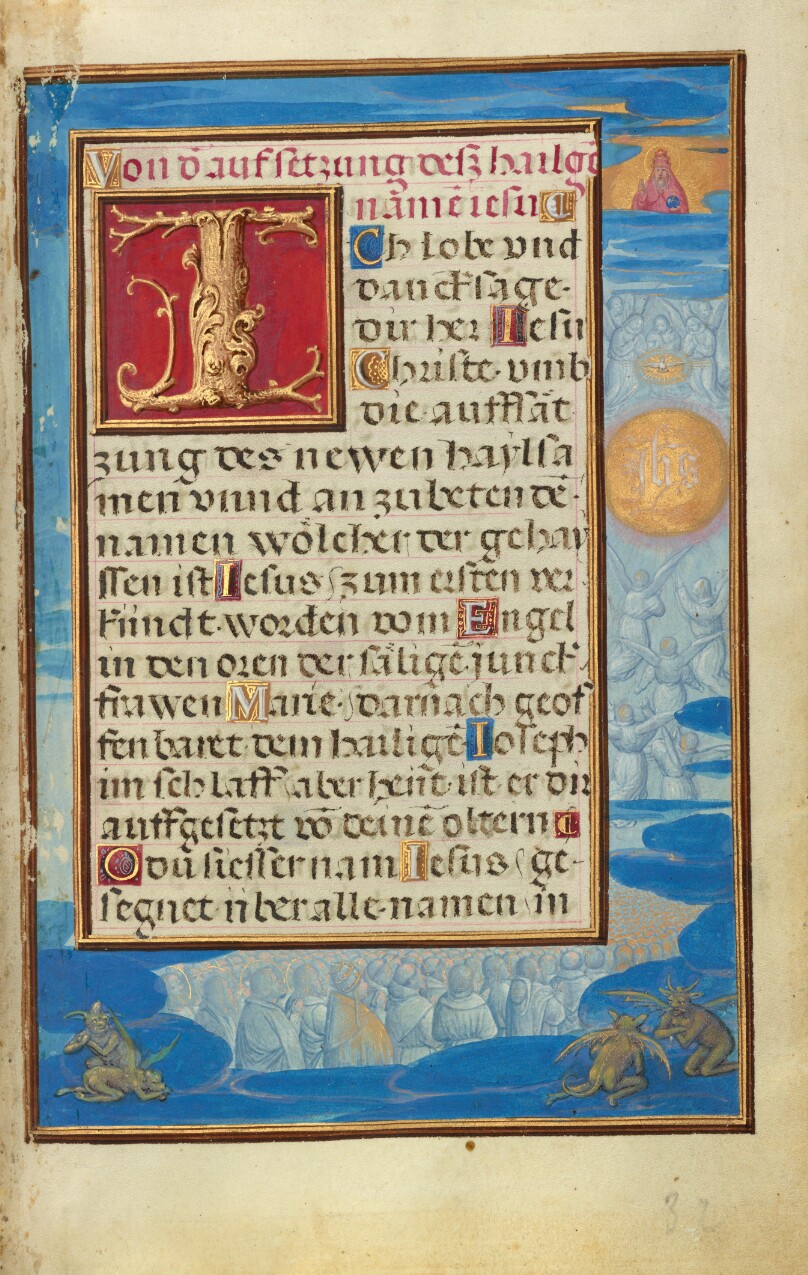 Von d̄ aufsetzung desz hailgē
namē iesu
ICh lobe vnd
danckſage
dir her Iesu
Chriſte· vmb
die auffſat
zung des newen haylſa
men vnnd an zu beten dē
namen wölcher der gehay
ſſen iſt Iesus zum erſten ver
kündt worden vom Engel
in den oren der ſäligē junck
frawen Marie darnach geof
fenbaret dem hailigē Ioſeph
im ſchlaff aber heūt iſt er dir
auffgeſetzt vō deinē oltern
O dū ſieſſer nam Iesus ge
ſegnet über alle namen in
jhs
32